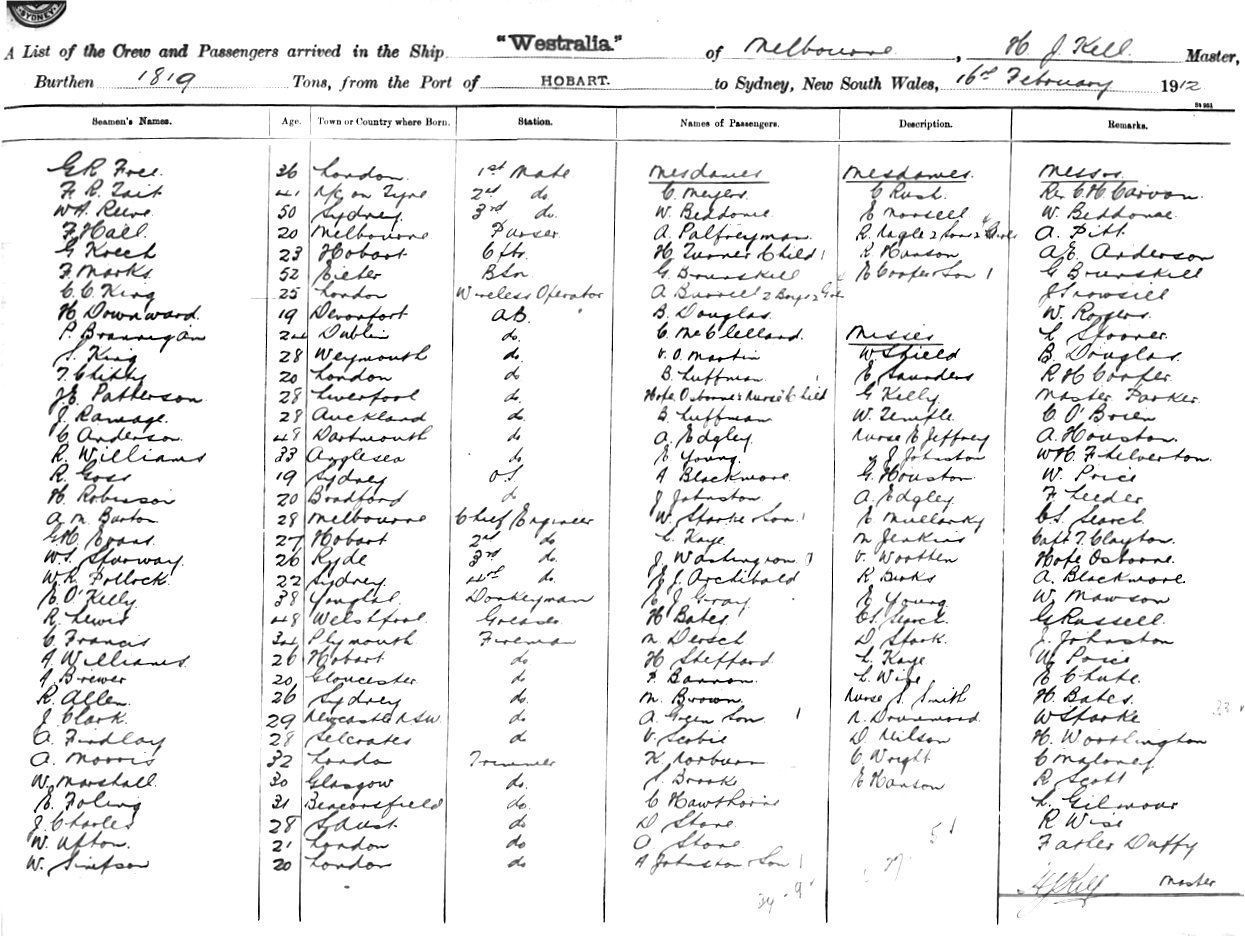 SYDNEY
A List of the Crew and Passengers arrived in the Ship "Westralia" of Melbourne, H J. Kell Master,
Burthen 1819 Tons, from the Port of HOBART. to Sydney, New South Wales, 16th February 1912
Seamen's Names. Age. Town or Country where Born. Station. Names of Passengers. Description. Remarks.
G R Free 36 London 1st Mate Mesdames Mesdames Messrs
F. R. Tait 41 N/c on Tyne 2nd do C. Meyers C Rush Rev C H
W. A. Reeve 50 Sydney 3rd do. W. Beddome E W. Beddome
F Hall 20 Melbourne Purser A. Palfreyman R. Nagle 2 Sons 2 A. Pitt
G Keech 23 Hobart H. Turner & Child 1 R Hanson A.E. Anderson
F Marks 52 Exeter Bsn G. Brunskill E Cooper & Son 1 G Brunskill
C. C. King 25 London Wireless Operator A Burrell 2 Boys 2
H Downward 19 Devonport AB. B. Douglas W. Rogers
P. Brannigan 24 Dublin do C. McClelland Messrs L. Spooner
S. King 28 Weymouth do V. O. Martin W Shield B. Douglas
T. Chitty 20 London do B. Luffman 1 E Saunders R H Cooper
J.E. Patterson 28 Liverpool do. Hope Osborne & Nurse & Child G Kelly Master Parker
J. Ramage 28 Auckland do B. Luffman W. Temple C. O'Brien
C. Anderson 48 Dartmouth do A. Edgley Nurse E Jeffrey A. Houston
R. Williams 33 Anglesea do E Young J Johnston
R. Goss 19 Sydney OS A Blackmore G. Houston W. Price
H. Robinson 20 Bradford do J Johnston A. Edgley F Leeder
A. M. Barton 28 Melbourne Chief Engineer W. Sparke & Son 1 E Mullanky Cs. Search
G.H. Evans 27 Hobart 2nd do L. Kaye M Jenkins Capt T. Clayton
W.S. Sparway 26 Ryde 3rd do J Washington V. Wootten Hope Osborne
W.R. Pollock 22 Sydney 4th do. E. J. Archibald R. Birks A. Blackmore
E. O'Kelly 38 Youghal Donkeyman E. J. Gray E Young W. Mawson
R. Lewis 48 Welshpool Greaser H Bates Cs. Search G Russell
C Francis 34 Plymouth Fireman M Dersch D Stark J. Johnston
A Williams 26 Hobart do H Sheppard L. Kaye W Price
A Brewer 20 Gloucester do F. Bannon L. Wise E Chute
R. Allen 26 Sydney do M. Brown Nurse S. Smith H Bates
J. Clark 29 Newcastle NSW. do A Green Son 1 R. Drummond W Sparke
A. Findlay 28 Selcrates do V. Scobie D Neilson H. Worthington
A. Morris 32 London Trimmer K. Norburn C Wright C Maloney
W. Marshall 30 Glasgow do. S. Brooks E Hanson R Scott
E. Foling 31 Beaconsfield do. C Hawthorne L. Gilmour
J Charles 28 do D Stone R Wise
W. Upton 21 London do O. Stone Father Duffy
W. Simpson 20 London do A Johnston & Son 1
H J Kell Master